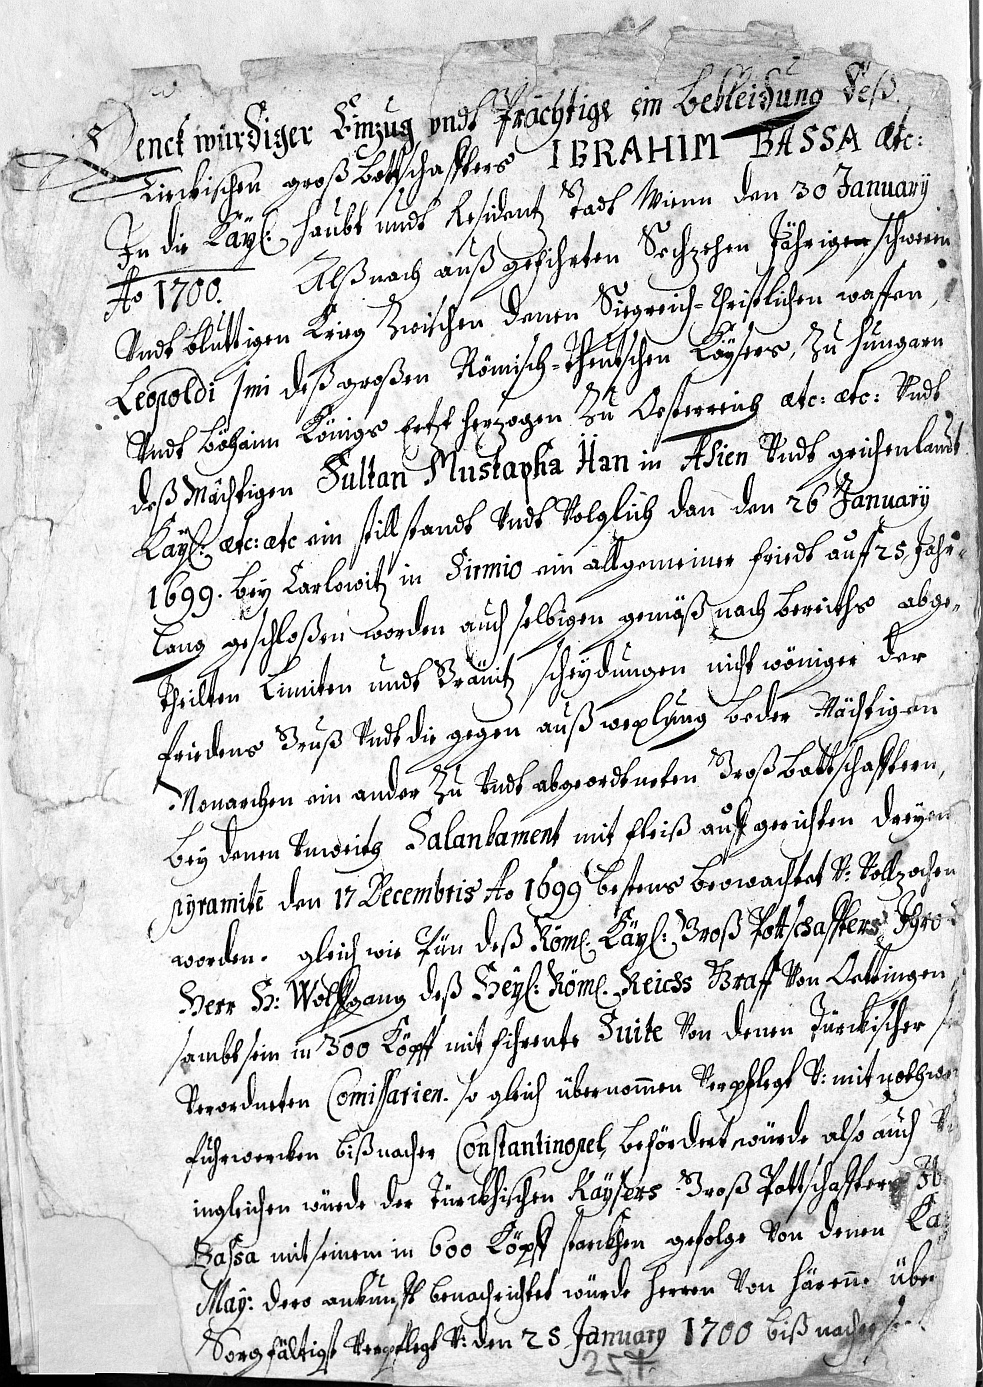 Denckwürdiger Einzug undt Prächtige ein Bekleidung deß
Türckischen groß Bottschaffters IBRAHIM BASSA etc:
In die Kayl: haubt undt Residentz Stadt Wienn den 30 January
Ao 1700. Alß nach auß geführten Sechzehen Jährigen schweren
Undt bluttigen Krieg Zwischen denen Siegreich-Christlichen waffen,
Leopoldi Imi deß großen Römisch-Theutschen Kaysers, Zu Hungarn
Undt Böhaim Königs Ertz Herzogen Zu Oesterreich etc: etc: Undt
deß Mächtigen Sultan Mustapha Han in Asien Undt grichenlandt
Kayl: etc: etc ein stillstandt Undt Volglich dan den 26 January
1699. bey Carlowitz in Sirmio ein allgemeiner friedt auff 25 Jahr
Lang geschloßen worden auch selbigen gemäß nach bereiths abge-
theilten Limiten undt Gränitz scheydungen nicht wöniger der
friedens Gruß Undt die gegen auß wexlung beder Mächtigen
Monarchen ein ander Zu Undt abgeordtneten Groß bottschafftern,
bey denen Unweith Salankament mit fleiß auff gerichten dreyen
pyramite den 17 Decembris Ao 1699 bestens beobachtet V: Vollzochen
worden. gleich wie Nun deß Röml. Kayl: Groß Pottschaffters Ihro
Herr H: Wolffgang deß Heyl: Röml. Reichs Graff Von Oettingen
sambt sein in 300 Köpff mit fihrente Suite Von denen Türckischer
Verordneten Comissarien so gleich übernommen Verpflegt V: mit
fuhrwercken biß nacher Constantinopel befördert würde also auch
ingleichen würde der Türckhischen Kaysers Groß Pottschaffter
Bassa mit seinem in 600 Köpff starckhen gefolge Von denen
May: dero ankunfft benachrichtet würde herren Von
Sorgfältigst Verpflegt V: den 25 January 1700 biß nacher
257